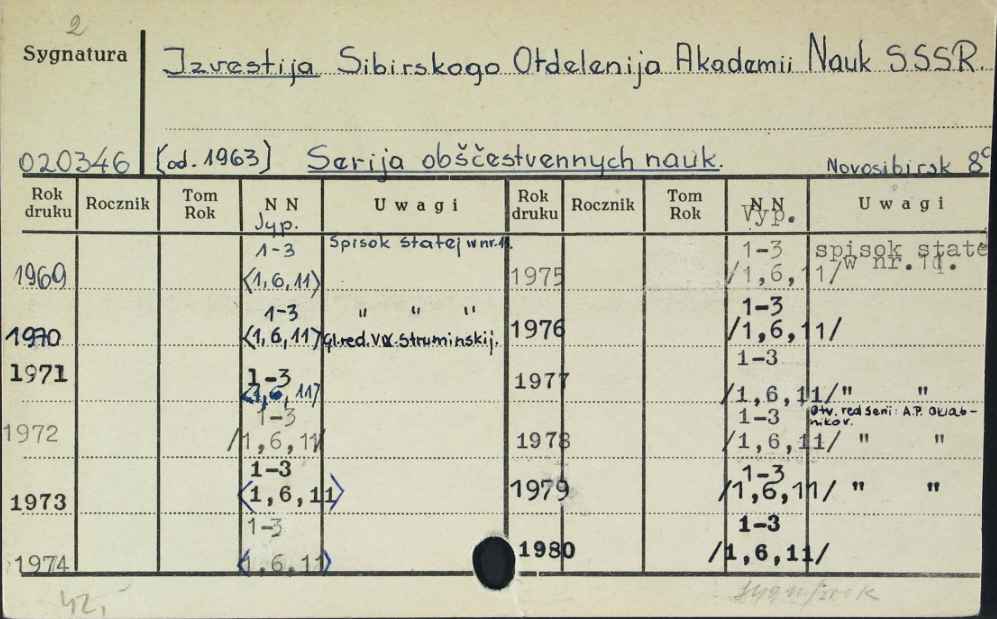 2
Sygnatura
Izvestija Sibirskogo Otdelenija Akademii Nauk SSSR.
020346 [od. 1963] Serija obščestvennych nauk. Novosibirsk 8°
Rok druku Rocznik Tom Rok NN Uwagi Rok druku Rocznik Tom Rok NN Uwagi
Vyp.
1969 1-3 <1,6,11> Spisok statej w nr. 11.
1970 1-3 <1,6,11> " " " Gl. red. V.V. Struminskij.
1971 1-3 <1,6,11>
1972 1-3 /1,6,11/
1973 1-3 <1,6,11>
1974 1-3 <1,6,11>
Vyp.
1975 1-3 /1,6,11/ spisok state w nr. 11.
1976 1-3 /1,6,11/
1977 1-3 /1,6,11/ " "
1978 1-3 /1,6,11/ Otv. red serii: A.P. Okladnikov. " "
1979 1-3 /1,6,11/ " "
1980 1-3 /1,6,11/
42,-